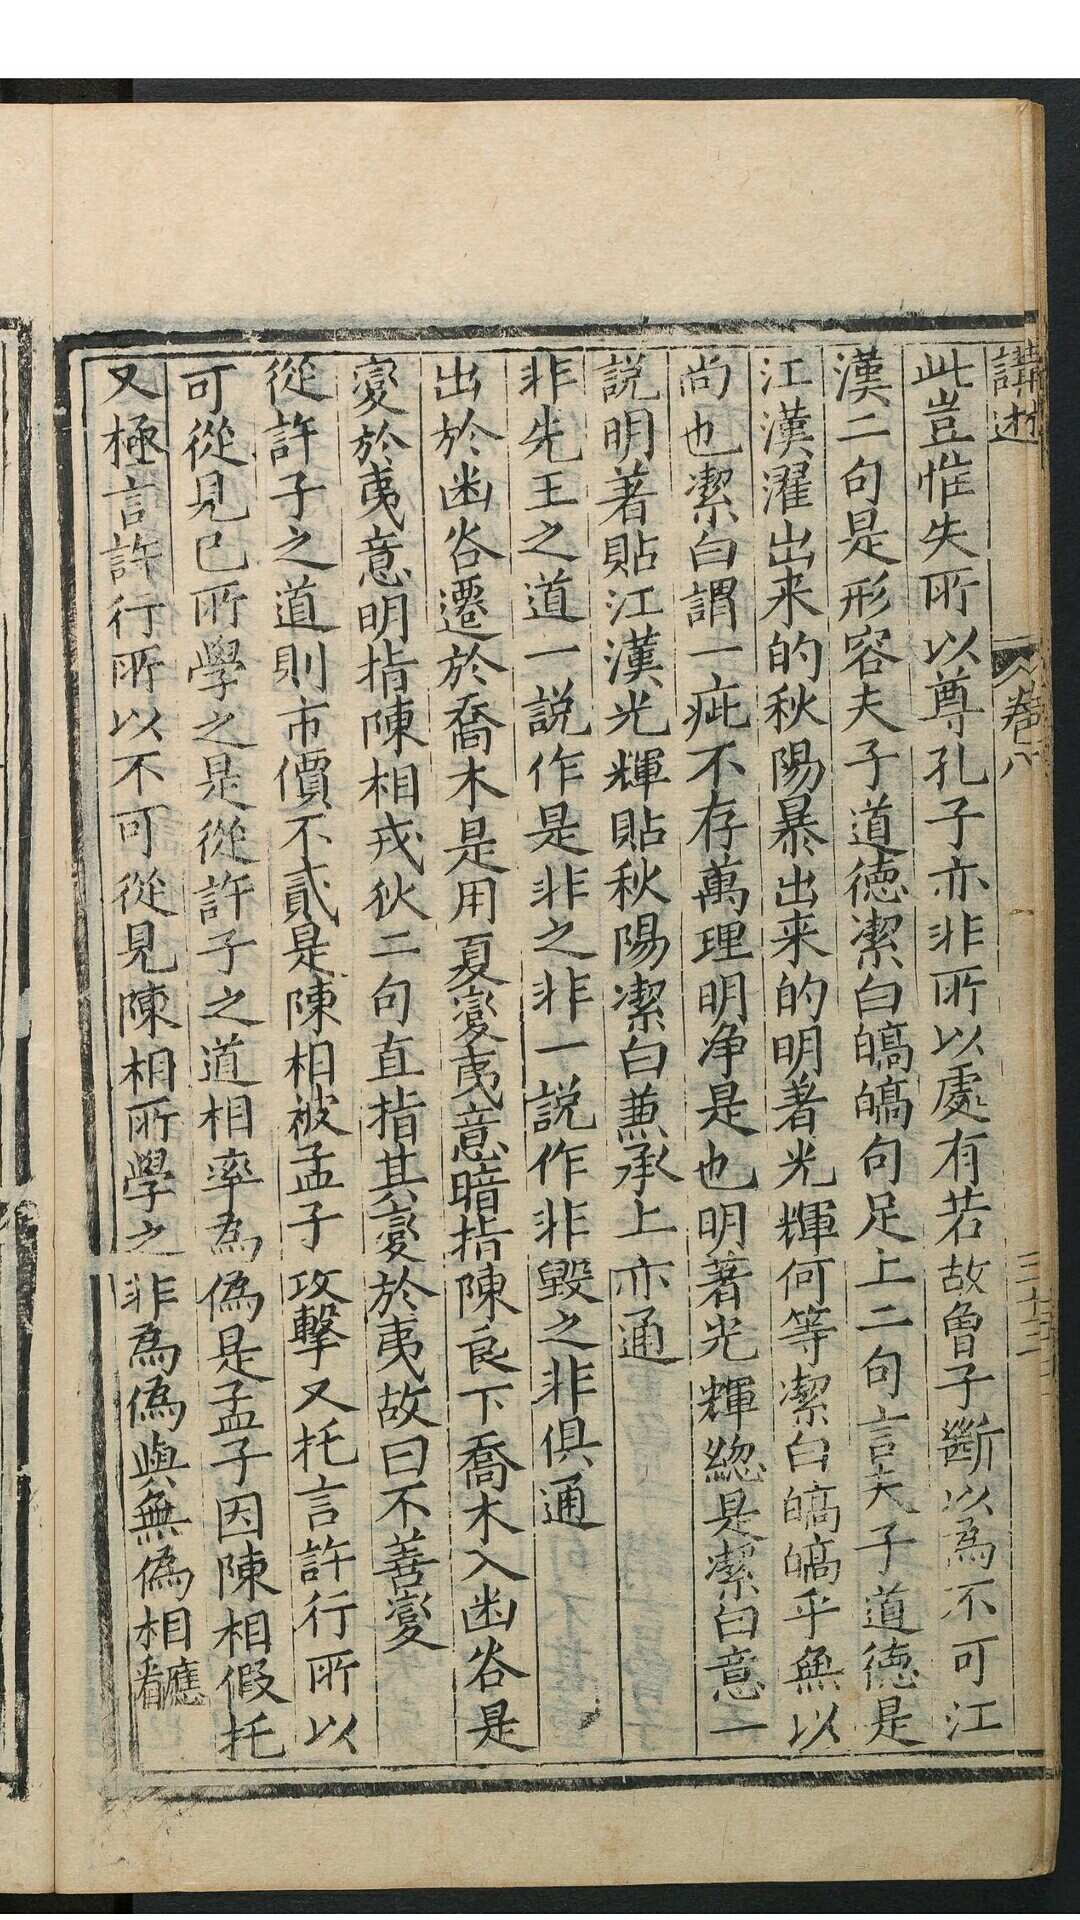 講述 卷八
此豈惟失所以尊孔子亦非所以處有若故魯子斷以為不可江
漢二句是形容夫子道德潔白皜皜句足上二句言夫子道德是
江漢濯出来的秋陽暴出来的明著光輝何等潔白皜皜乎無以
尚也潔白謂一疵不存萬理明净是也明著光輝緫是潔白意一
説明著貼江漢光輝貼秋陽潔白兼承上亦通
非先王之道一説作是非之非一説作非毀之非俱通
出於幽谷遷於喬木是用夏變夷意暗指陳良下喬木入幽谷是
變於夷意明指陳相戎狄二句直指其變於夷故曰不善變
從許子之道則市價不貳是陳相被孟子攻擊又托言許行所以
可從見已所學之是從許子之道相率為偽是孟子因陳相假托
又極言許行所以不可從見陳相所學之非為偽與無偽相應看